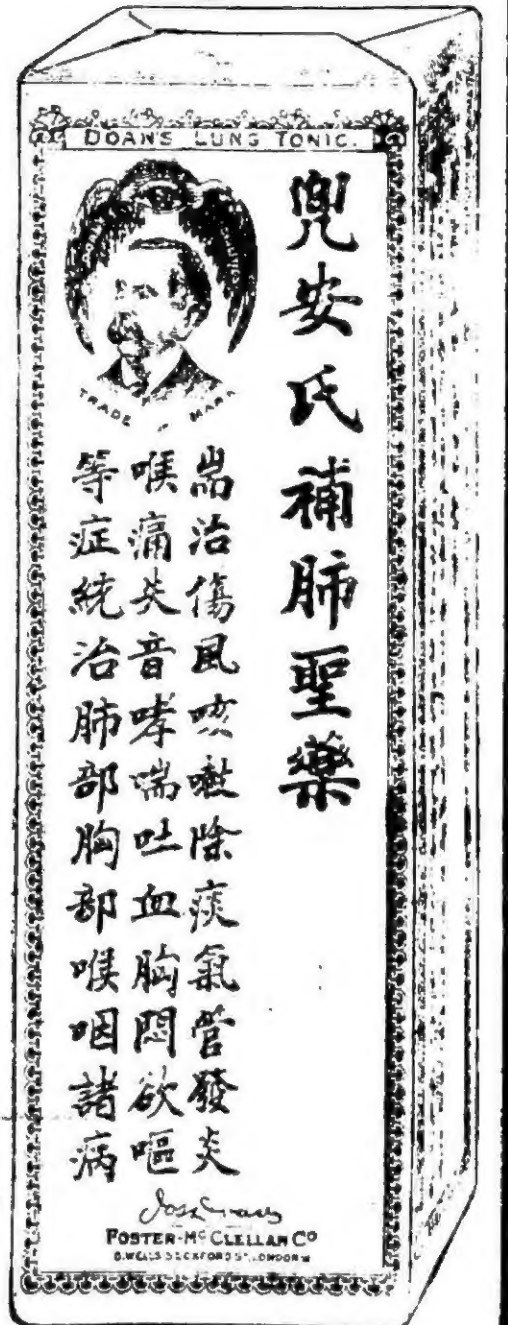 DOAN'S LUNG TONIC.
TRADE MARK
兜安氏補肺聖藥
耑治傷風咳嗽除痰氣管發炎
喉痛失音哮喘吐血胸悶欲嘔
等症統治肺部胸部喉咽諸病
FOSTER-McCLELLAN Co
OXFORD ST. LONDON W